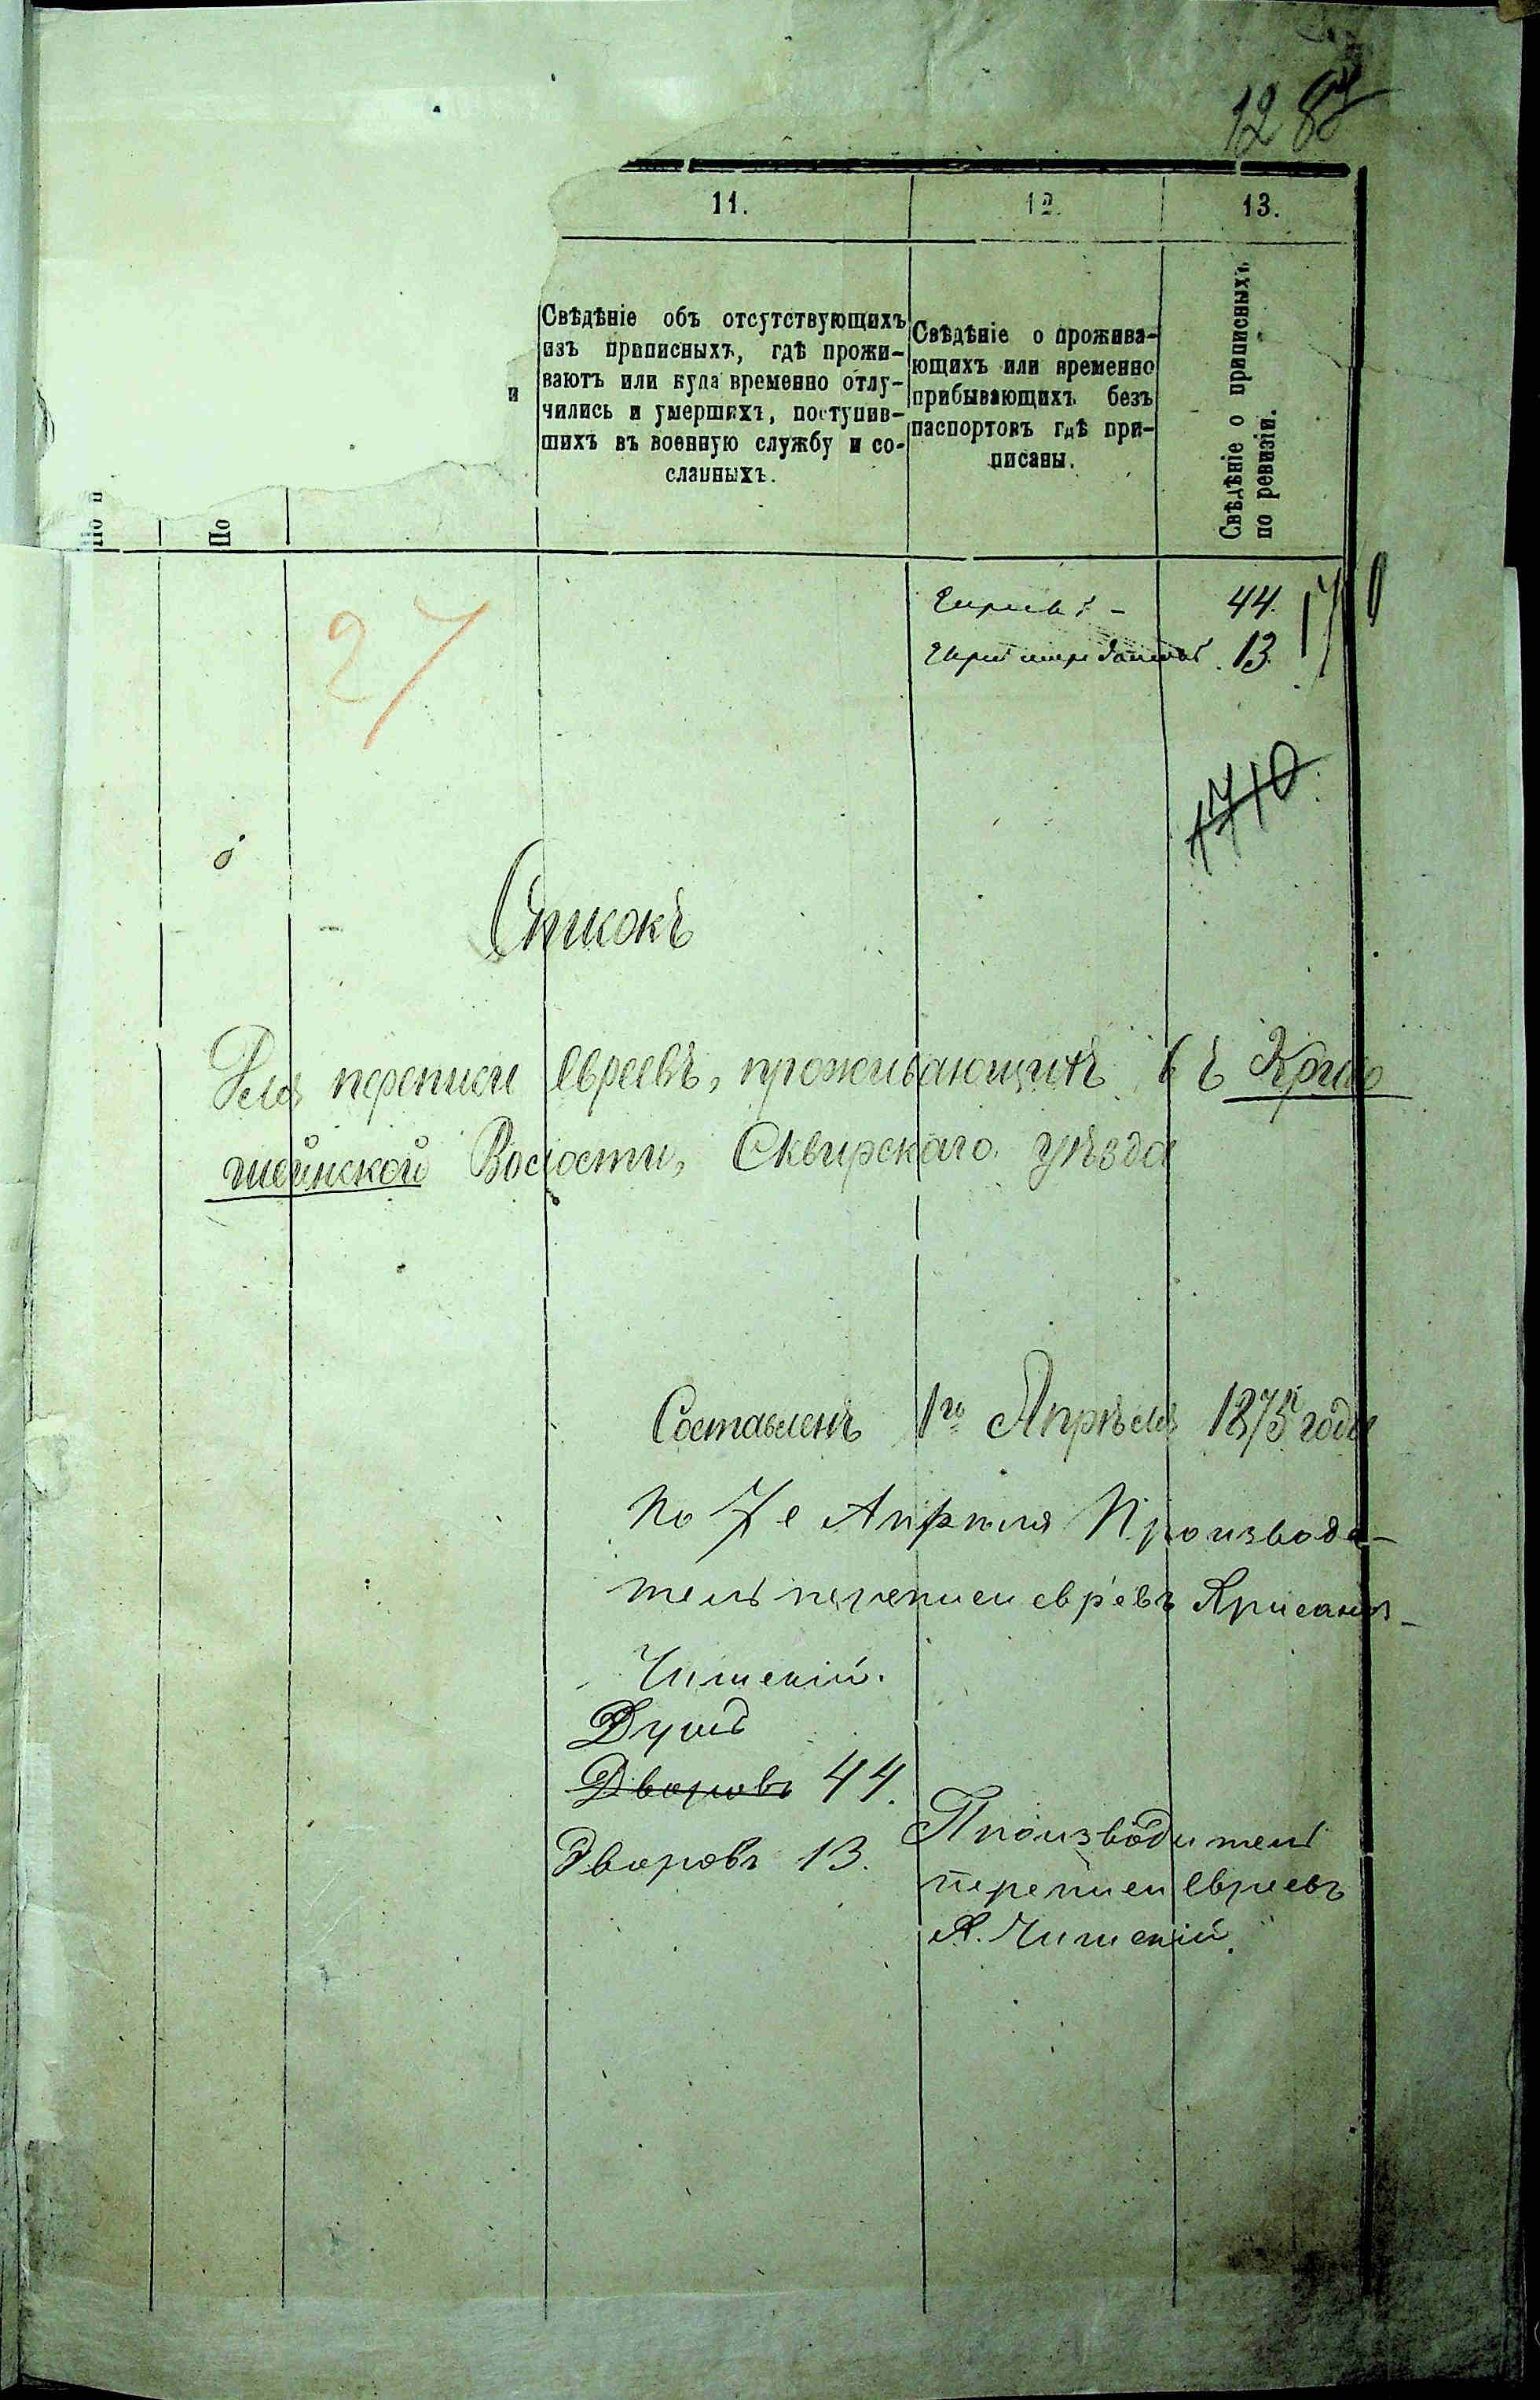 128
11.
12.
13.
Свѣдѣніе объ отсутствующихъ
изъ приписныхъ, гдѣ прожи-
ваютъ или куда временно отлу-
чились и умершихъ, поступив-
шихъ въ военную службу и со-
сланныхъ.
Свѣдѣніе о прожива-
ющихъ или временно
прибывающихъ безъ
паспортовъ гдѣ при-
писаны.
Свѣдѣніе о приписныхъ
по ревизіи.
и
По
По
44.
13.
27
1710
Списокъ
Для переписи Евреевъ, проживающихъ въ Криво
шеинской Волости, Сквирскаго уѣзда
Составленъ 1го Апрѣля 1875 года
По 7е Апрѣля Производи-
тель переписи евревъ
Чишскій.
Душъ
Дворовъ 44.
Дворовъ 13.
Производитель
переписи Евреевъ
А. Чишскій.